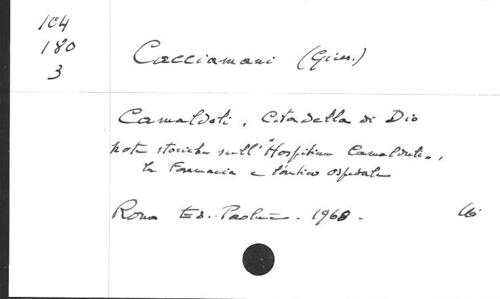 104
180
3
Cacciamani (Gius.)
Camaldoli, Cittadella di Dio
note storiche sull'"Hospitium Camalduli",
la Farmacia e l'antico ospedale
Roma Ed. Paoline - 1968 -